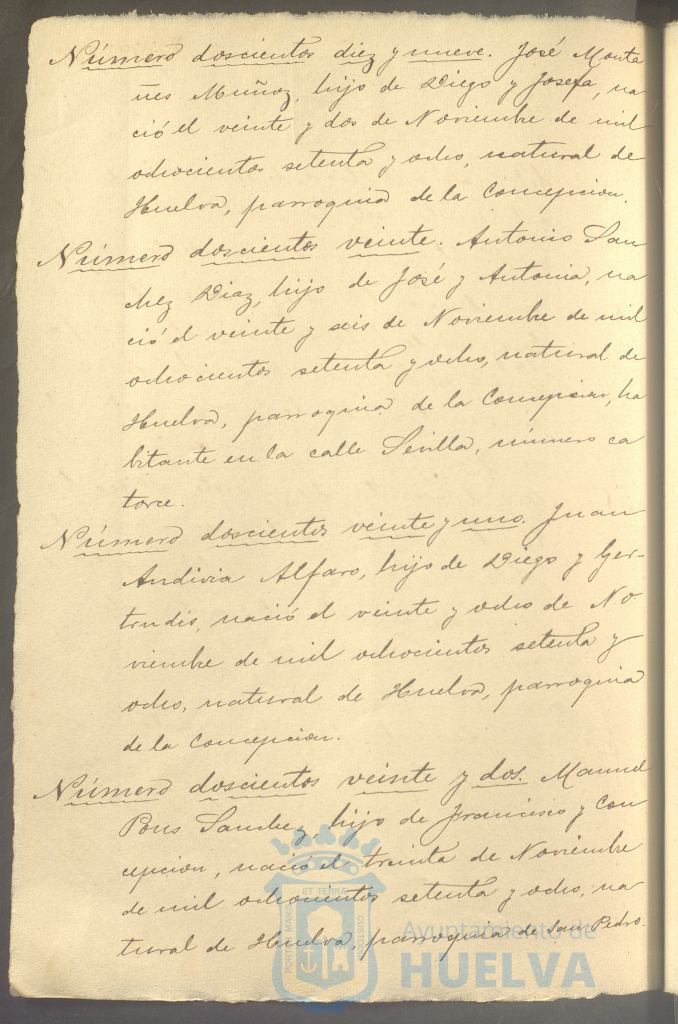 Número doscientos diez y nueve. José Monta
ñes Muñoz, hijo de Diego y Josefa, na
ció el veinte y dos de Noviembre de mil
ochocientos setenta y ocho, natural de
Huelva, parroquia de la Concepcion.
Número doscientos veinte. Antonio San
chez Diaz, hijo de José y Antonia, na
ció el veinte y seis de Noviembre de mil
ochocientos setenta y ocho, natural de
Huelva, parroquia de la Concepcion, ha
bitante en la calle Sevilla, número ca
torce.
Número doscientos veinte y uno. Juan
Andivia Alfaro, hijo de Diego y Ger-
trudis, nació el veinte y ocho de No
viembre de mil ochocientos setenta y
ocho, natural de Huelva, parroquia
de la Concepcion.
Número doscientos veinte y dos. Manuel
Pons Sanchez, hijo de Francisco y Con
cepcion, nació el treinta de Noviembre
de mil ochocientos setenta y ocho, na
tural de Huelva, parroquia de San Pedro.
PORTUS MARIS ET TERRÆ CUSTODIA
Ayuntamiento de
HUELVA